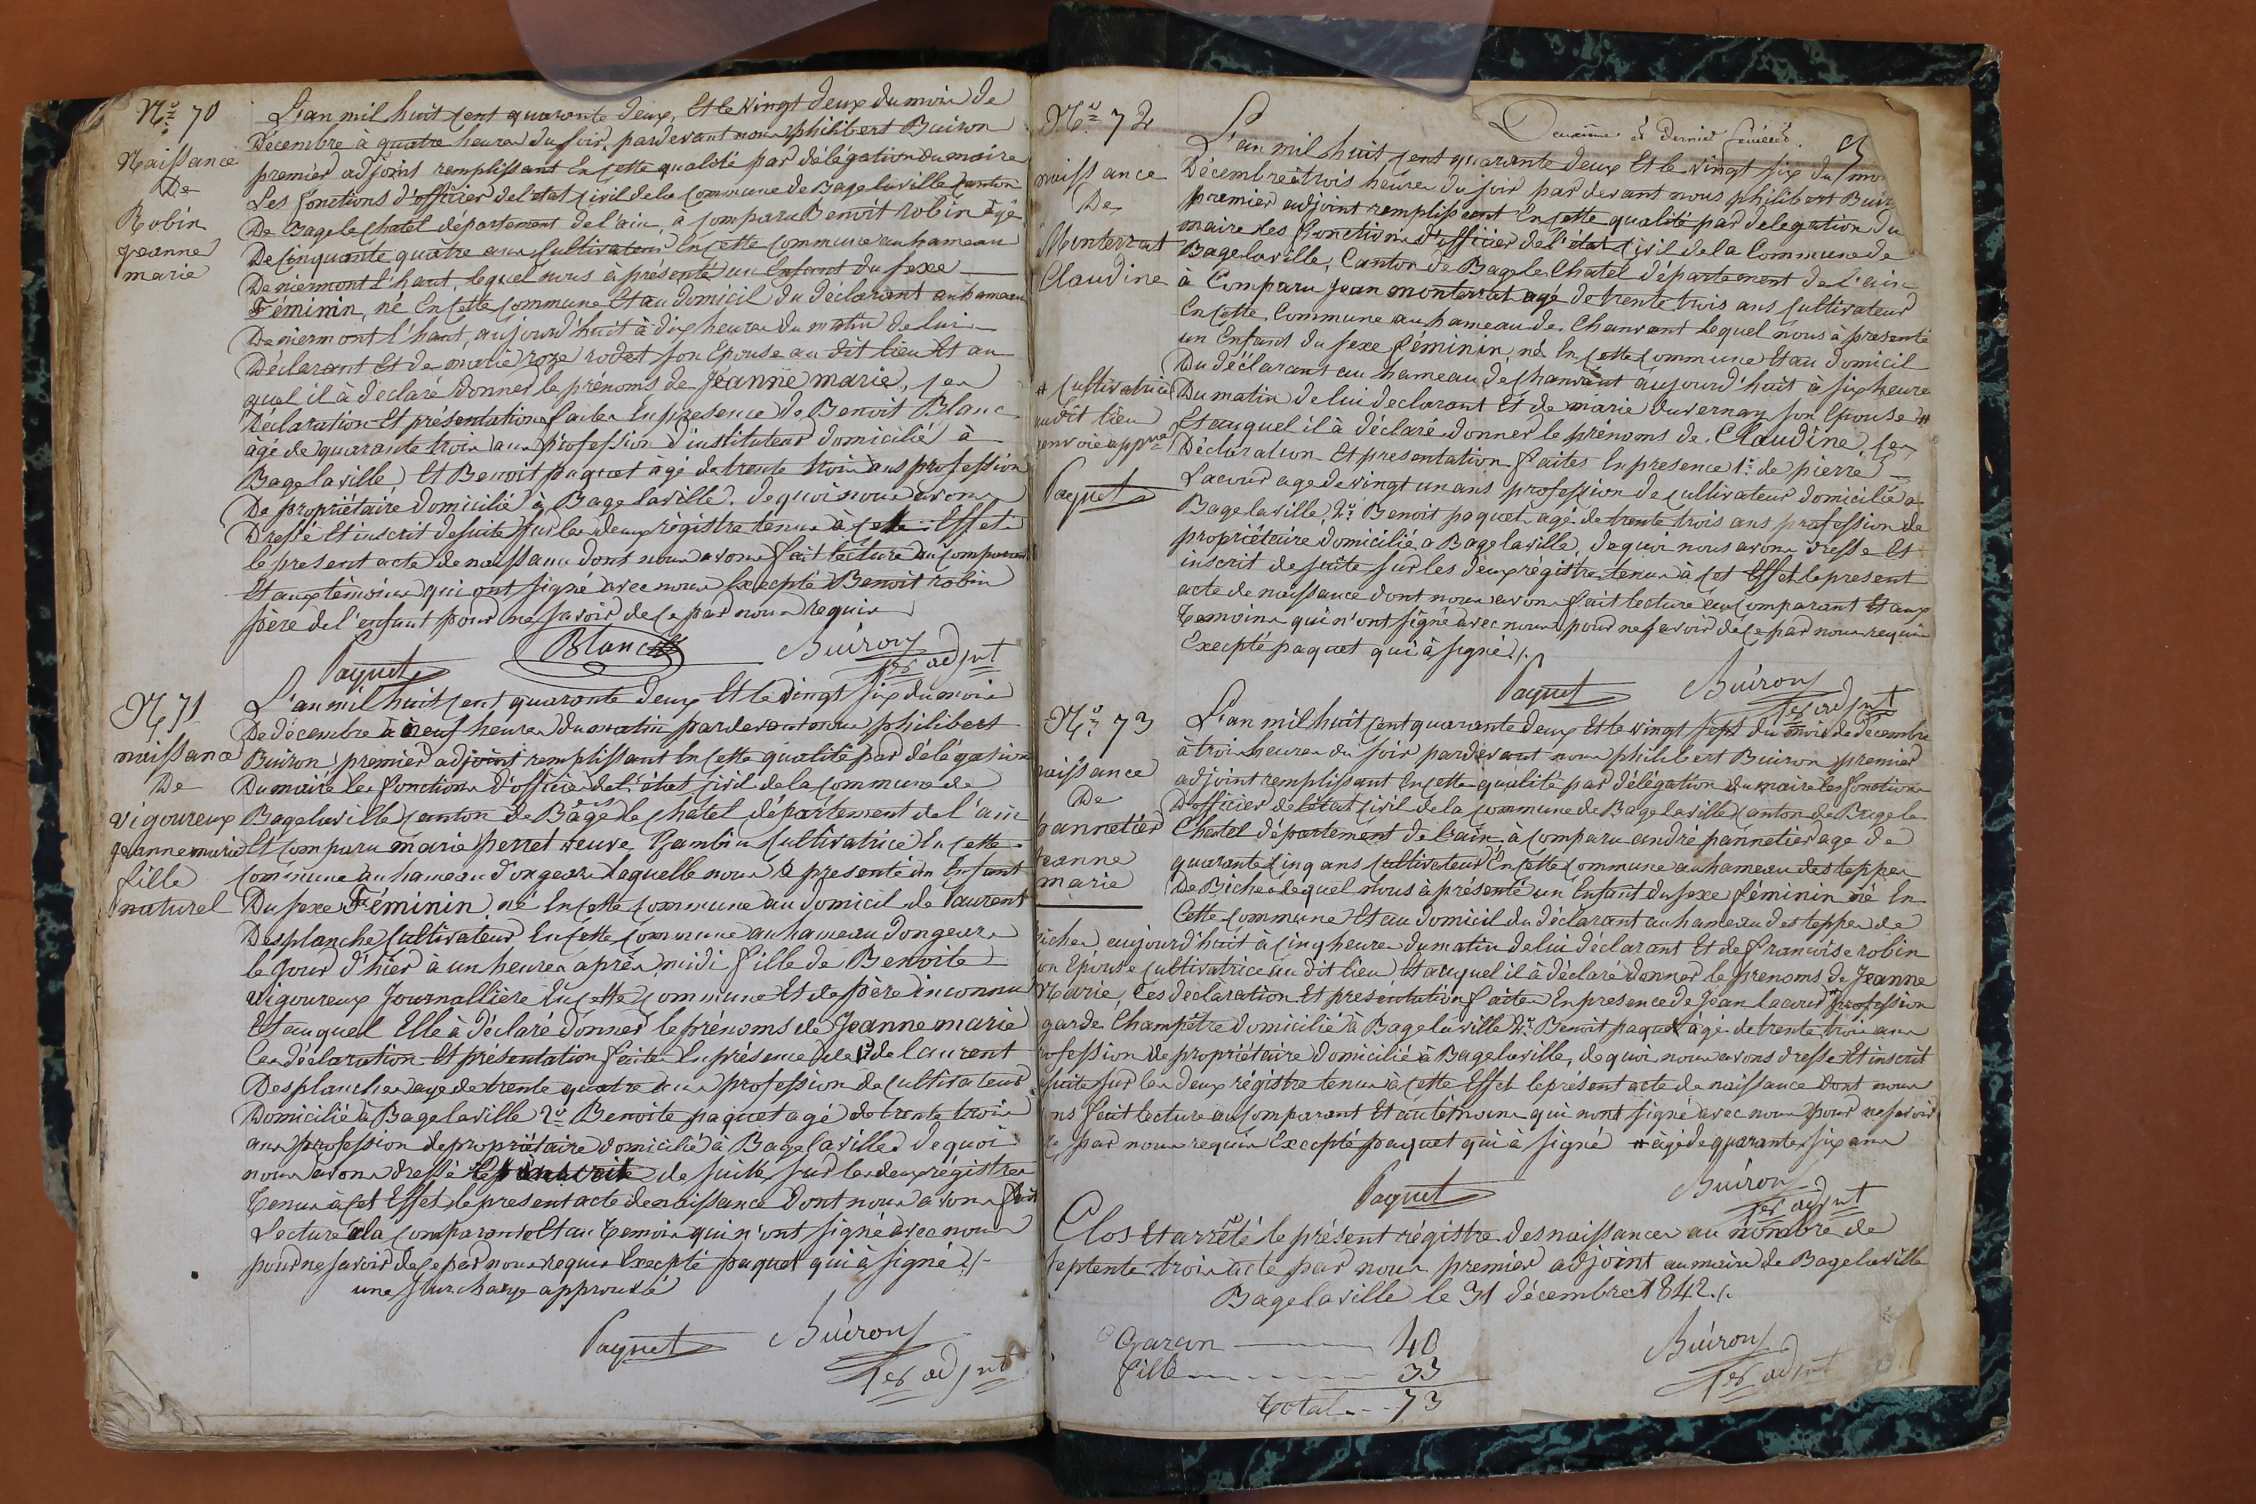 N.o 70
Naissance
De
Robin
jeanne
marie
L'an mil huit cent quarante deux, Et le vingt deux du mois de
Décembre à quatre heures du soir, pardevant nous philibert Buiron
premier adjoint remplissant En cette qualité par délégation du maire
Les fonctions d'officier de l'etat civil de la commune de Bage la ville canton
De Bage le chatel département de l'ain, a comparu Benoit robin âgé
De cinquante quatre ans cultivateur En cette commune au hameau
De niermont l'haut, lequel nous a présenté un Enfant du sexe
Féminin, né En cette commune Et au domicil du déclarant au hameau
De niermont l'haut, aujourd'huit à dix heures du matin de lui
Déclarant Et de marie roze rodet son Epouse au dit lieu Et au
quel il à déclaré donner le prénoms de Jeanne marie, ces
Déclaration Et présentation faites En presence de Benoit Blanc
âgé de quarante trois ans profession d'instituteur domicilié à
Bage la ville, Et Benoit paquet âgé de trente trois ans profession
De propriétaire domicilié à Bage la ville. de quoi nous avons
Dressé Et inscrit de suite sur les deux régistre tenus à cet Effet
le present acte de naissance dont nous avons fait lecture au comparant
Et aux témoins qui ont signé avec nous Excepté Benoit robin
père de l'enfant pour ne savoir de ce par nous requis
Paquet Blanc Buiron
1er adjnt
N.o 71
naissance
De
vigoureux
jeanne marie
fille
naturel
L'an mil huit cent quarante deux Et le vingt six du mois
De décembre à neuf heures du matin pardevant nous philibert
Buiron premier adjoint remplissant En cette qualité par délégation
Du maire les fonctions d'officier de l'état civil de la commune de
Bage la ville canton de Bage le châtel département de l'ain
Et comparu marie perret veuve Gambin cultivatrice En cette
commune au hameau d'ongeurs laquelle nous à presenté un Enfant
Du sexe Féminin né En cette commune au domicil de Laurent
Desplanche cultivateur En cette commune au hameau dongeurs
le jour d'hier à un heures après midi fille de Benoite
vigoureux Journallière En cette commune Et de père inconnu
Et auquel Elle à déclaré donner le prénoms de Jeanne marie
Ces déclaration Et présentation faites En présence de 1o de laurent
Desplanches age de trente quatre ans profession de cultivateur
Domicilié à Bage la ville 2o Benoite paquet agé de trente trois
ans profession de propriétaire domicilié à Bage la ville de quoi
nous avons dressé Et inscrit de suite sur les deux régistres
Tenus à cet Effet le present acte de naissance Dont nous avons fait
Lecture à la comparante Et au temoin qui n'ont signé avec nous
pour ne savoir de ce par nous requis Excepté paquet qui à signé ./.
une surcharge approuvé
Paquet Buiron
1er adjnt
Deuxième et dernier feuillet.
N.o 72
naissance
De
Monterrat
Claudine
L'an mil huit cent quarante deux Et le vingt six du moi
Décembre à trois heures du soir par devant nous philibert Buir
premier adjoint remplissant En cette qualité par delegation du
maire les fonctions d'officier de l'état civil de la Commune de
Bage la ville, Canton de Bage le Chatel département de l'ain
à Comparu Jean monterrat agé de trente trois ans cultivateur
En cette Commune au hameau de Chanvant lequel nous à presenté
un Enfant du sexe féminin, né En cette commune Et au domicil
Du déclarant au hameau de chanvant aujourd'huit à six heure
Du matin de lui declarant Et de marie duvernay son Epouse #
Et auquel il à déclaré donner le prénoms de Claudine, ces
Déclaration Et presentation faites En presence 1o de pierre
Lacour age de vingt un ans profession de cultivateur domicilié a
Bage la ville, 2o Benoit paquet agé de trente trois ans profession de
propriétaire domicilié a Bage la ville, de quoi nous avons dresse Et
inscrit de suite sur les deux régistre tenus à cet Effet le present
acte de naissance dont nous avons fait lecture au comparant Et aux
Temoins qui n'ont signé avec nous pour ne savoir de ce par nous requis
Excepté paquet qui à signé ./.
# cultivatrice
audit lieu
renvoie appvé
Paquet
Paquet Buiron
1er adjnt
N.o 73
naissance
De
pannetier
jeanne
marie
L'an mil huit cent quarante deux Et le vingt sept du mois de décembre
à trois heures du soir pardevant nous philibert Buiron premier
adjoint remplissant En cette qualité par délégation du maire les fonctions
D'officier de l'état civil de la commune de Bage la ville canton de Bage le
Chatel département de l'ain à comparu andré pannetier age de
quarante cinq ans cultivateur En cette commune au hameau des teppes
De Biches lequel Nous à présenté un Enfant du sexe féminin né En
Cette commune Et au domicil du déclarant au hameau des teppes de
Biches aujourd'huit à cinq heures du matin de lui déclarant Et de francoise robin
son Epouse cultivatrice au dit lieu Et auquel il à déclaré donner le prenoms de Jeanne
Marie, Ces déclaration Et présentation faites En presence de Jean lacour # profession
garde Champêtre domicilié à Bage la ville 2o Benoit paquet âgé de trente trois ans
profession de propriétaire domicilié à Bage la ville, de quoi nous avons dresse Et inscrit
suite sur les deux régistre tenus à cette Effet le présent acte de naissance Dont nous
ons fait lecture au comparant Et au témoins qui nont signé avec nous pour ne savoir
ce par nous requis Excepté paquet qui à signé # âgé de quarante six ans
Paquet Buiron
1er adjnt
Clos Et arrêté le présent régistre des naissances au nombre de
septente trois acte par nous premier adjoint au maire de Bage la ville
Bage la ville le 31 décembre 1842 ./.
Garcon 40
fille 33
Total 73
Buiron
1er adjnt